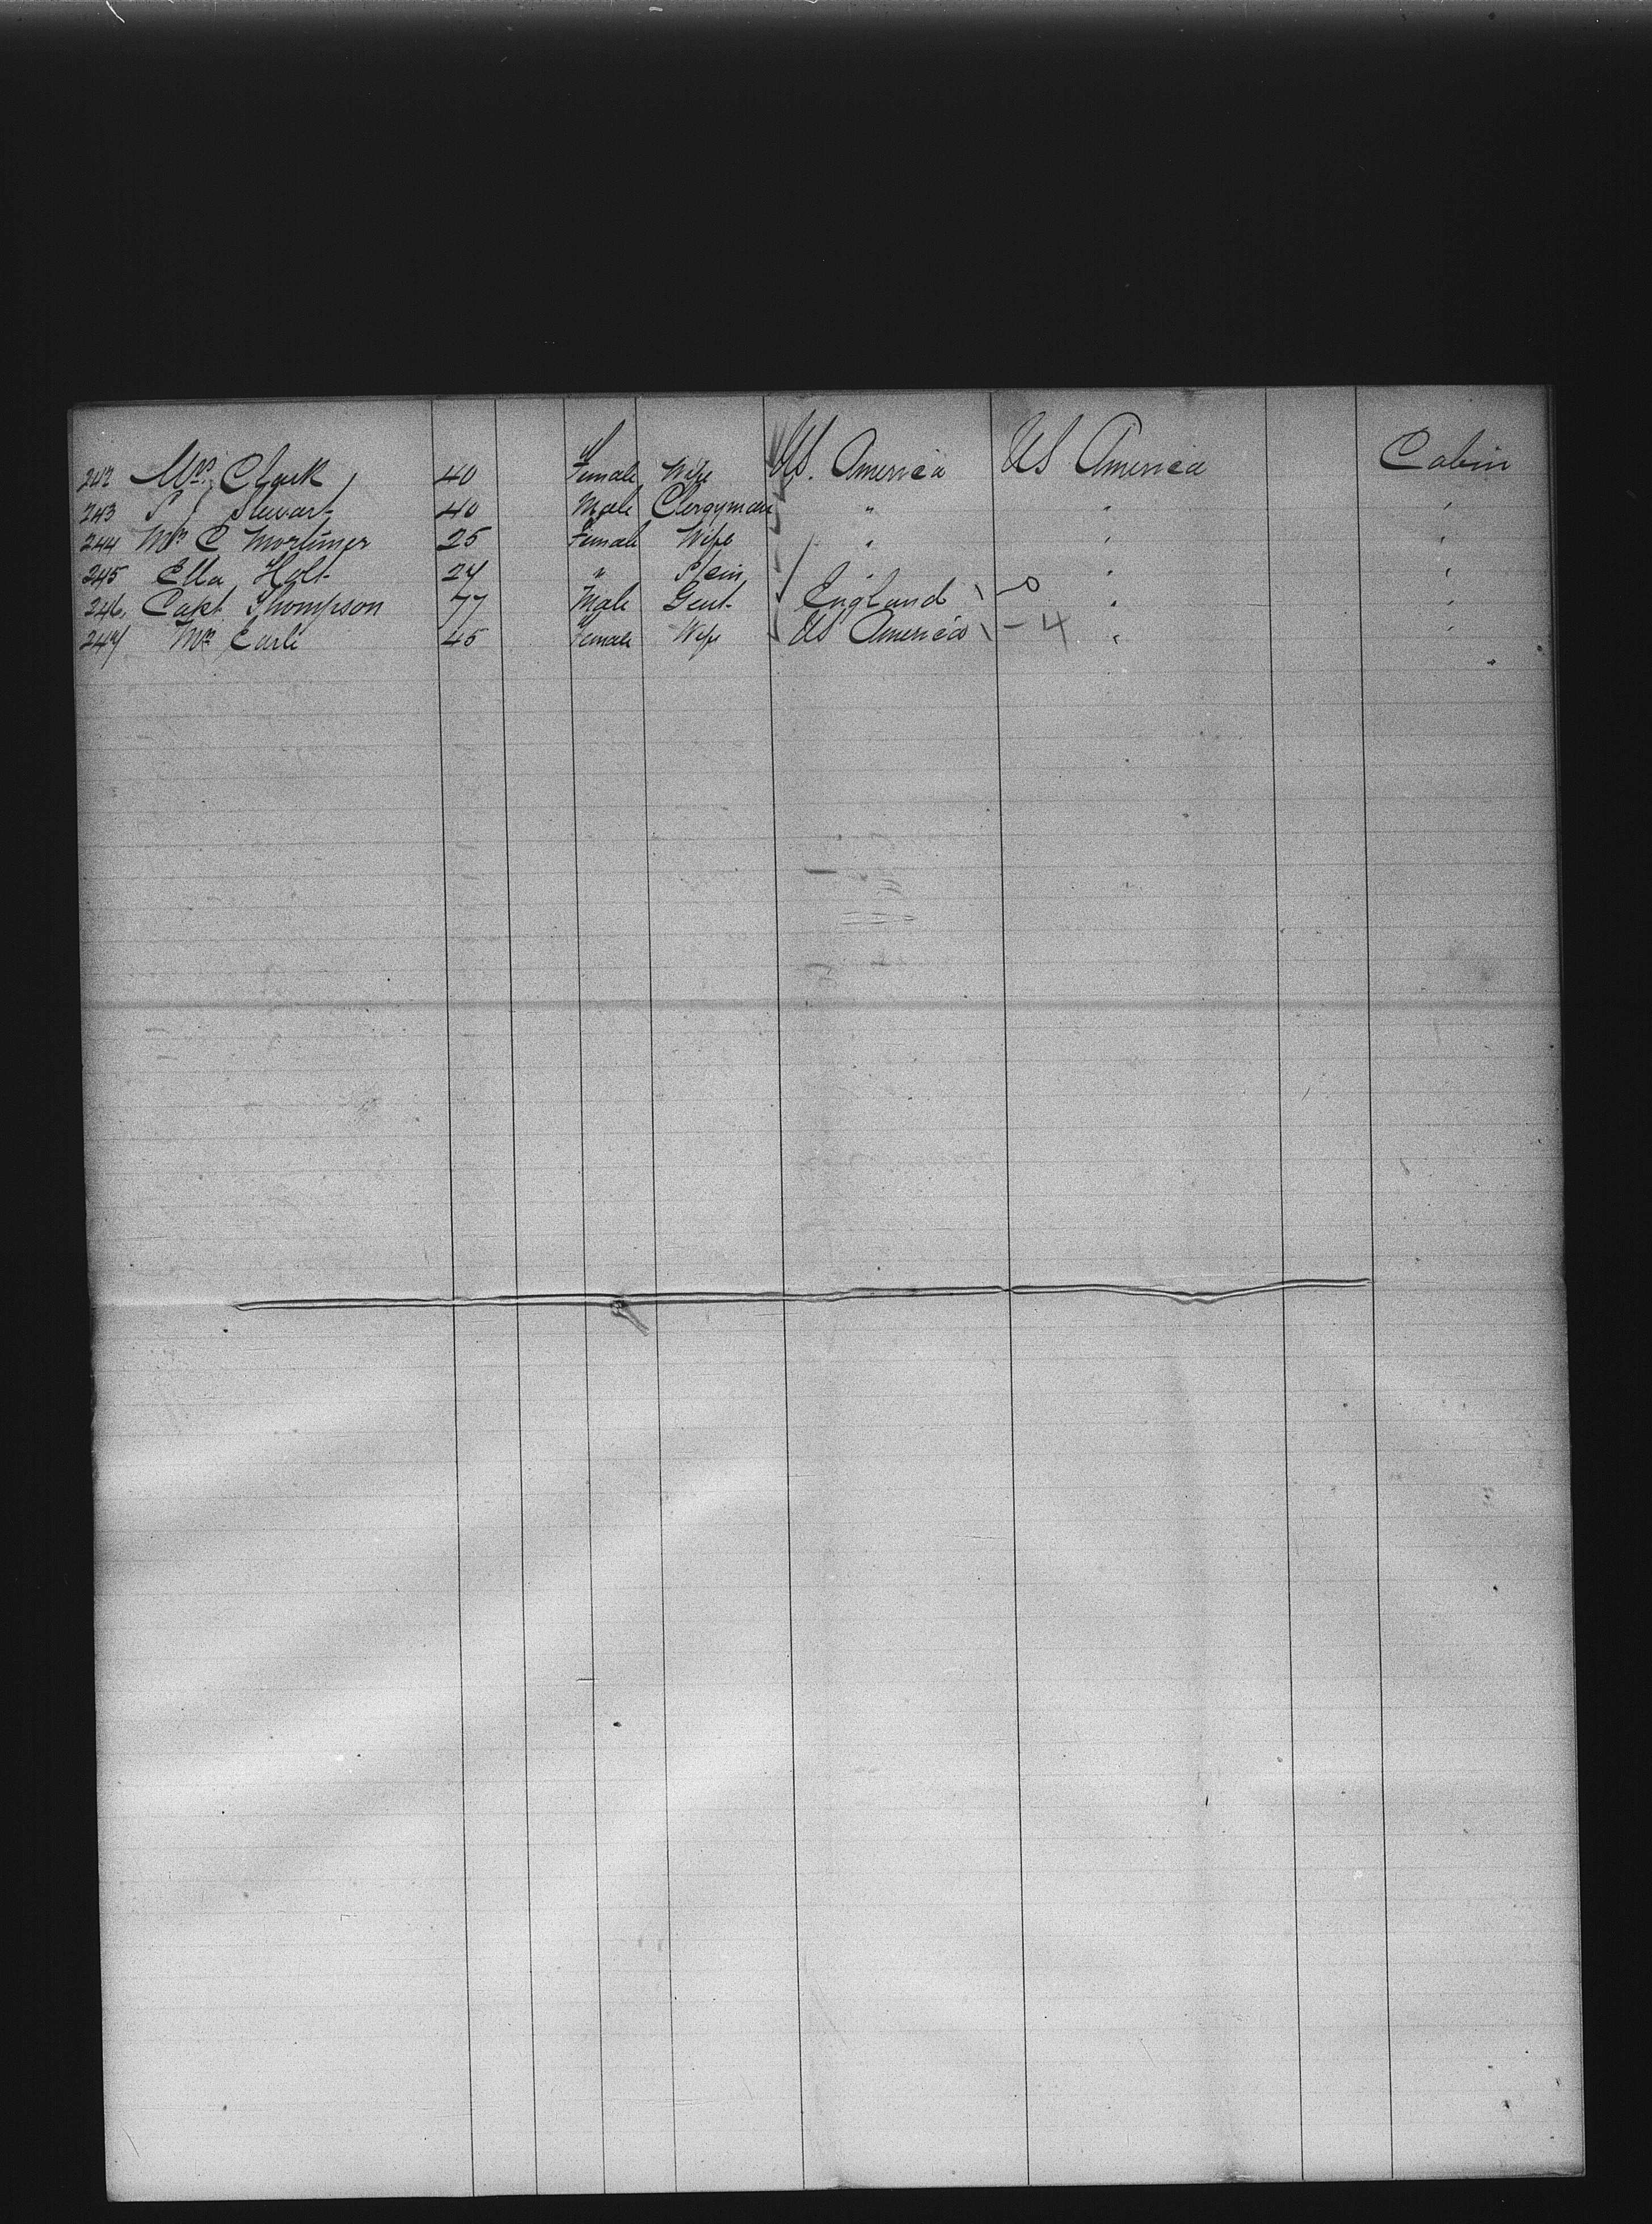 242 Mrs. Clark 40 Female Wife US. America US America Cabin
243 S J Stewart 40 Male Clergyman " " "
244 Mrs C Mortimer 25 Female Wife " " "
245 Ella Holt 24 " " " "
246. Capt. Thompson 77 Male Gent. England " "
247 Mrs Earle 45 Female Wife US America - 4 " "